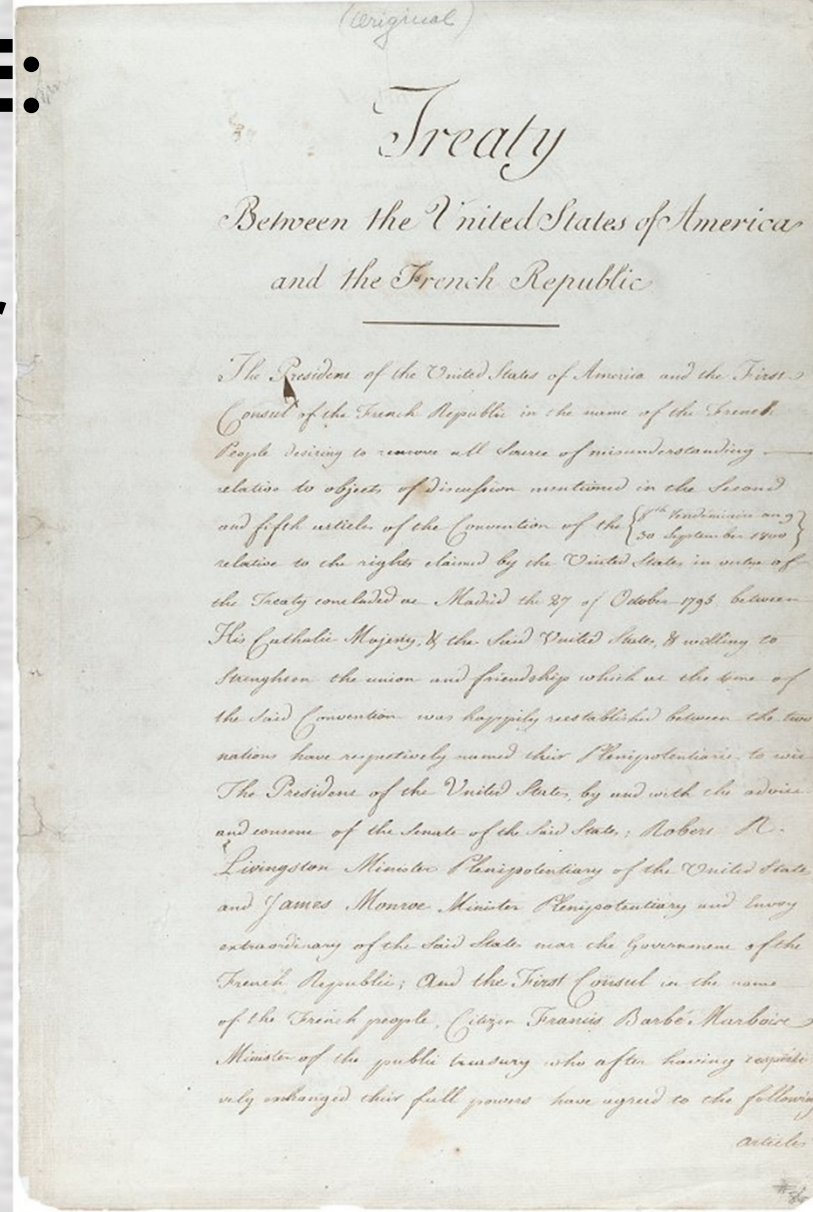 (Original)
:
Treaty
Between the United States of America
and the French Republic
The President of the United States of America and the First
Consul of the French Republic in the name of the French
People desiring to remove all Source of misunderstanding
relative to objects of discussion mentioned in the Second
and fifth articles of the Convention of the {8th Vendémiaire an 9
30 September 1800}
relative to the rights claimed by the United States in virtue of
the Treaty concluded at Madrid the 27 of October 1795, between
His Catholic Majesty, & the Said United States, & willing to
Strengthen the union and friendship which at the time of
the Said Convention was happily reestablished between the two
nations have respectively named their Plenipotentiaries to wit
The President of the United States, by and with the advice
and consent of the Senate of the Said States; Robert R.
Livingston Minister Plenipotentiary of the United States
and James Monroe Minister Plenipotentiary and Envoy
extraordinary of the Said States near the Government of the
French Republic; And the First Consul in the name
of the French people, Citizen Francis Barbé Marbois
Minister of the public treasury who after having respecti
vely exchanged their full powers have agreed to the following
articles